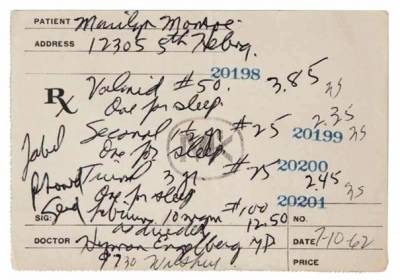 PATIENT Marilyn Monroe
ADDRESS 12305 5th Helena
20198
Rx Valmid #50. 3.85
One for sleep.
Seconal 1½ gr. #25 2.35
20199
Label One for sleep
20200
Phone Tuinal 3 gr. #25 2.45
Send One for sleep
20201
SIG: Librium 10 mgm #100 12.50 NO.
as directed
DOCTOR Hyman Engelberg MD DATE 7-10-62
9730 Wilshire PRICE